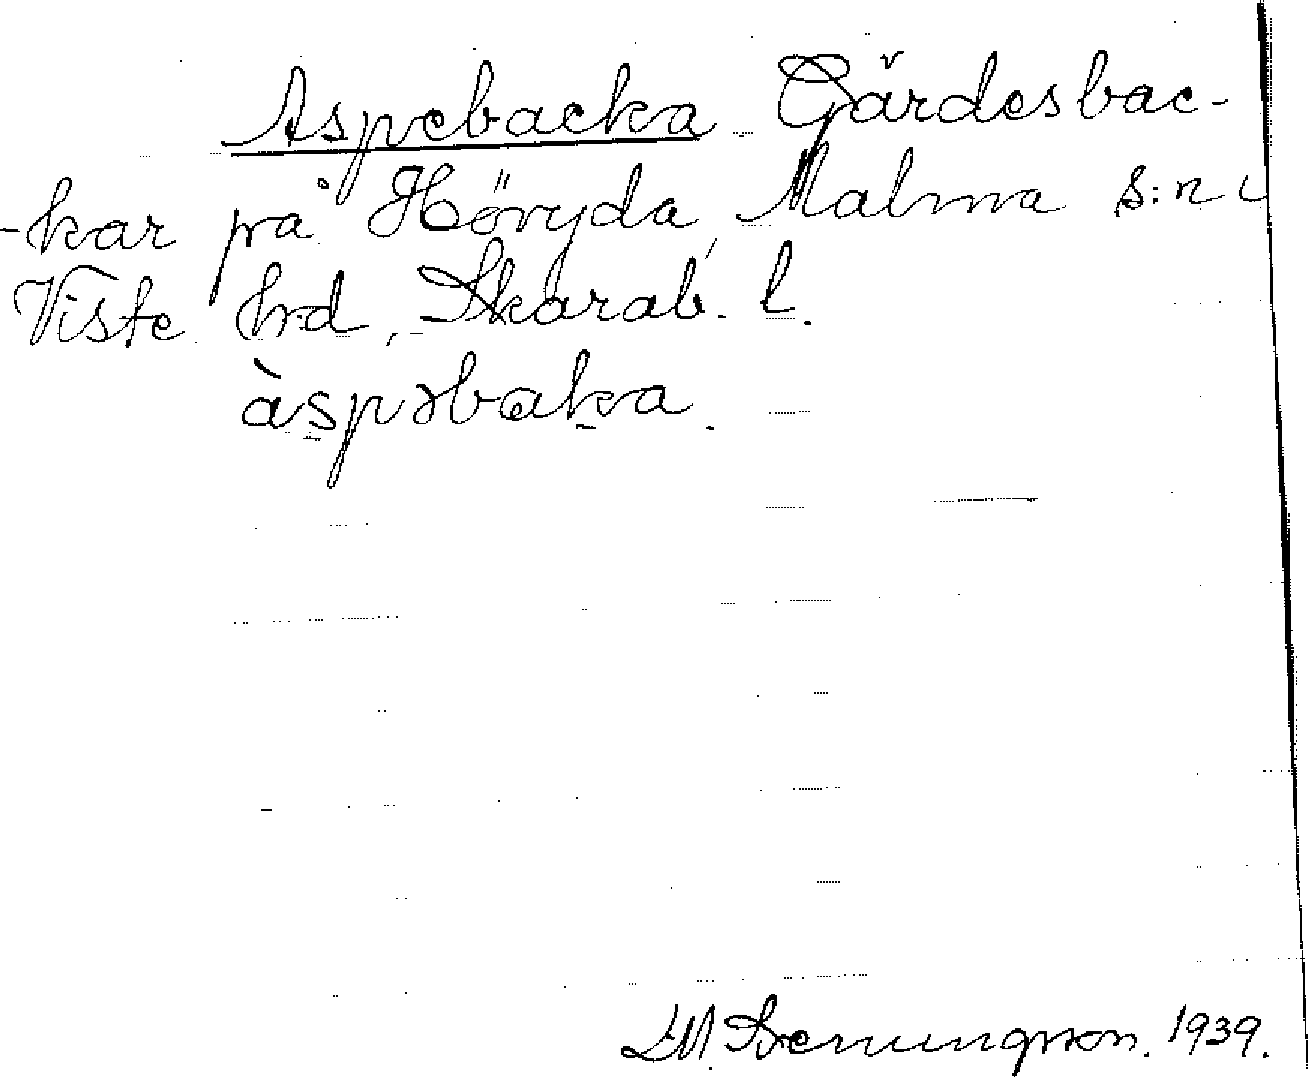 Aspebacka Gärdesbac-
-kar på Höryda, Malma s:n i
Viste hrd, Skarab. l.
àspəbaka.
1939.